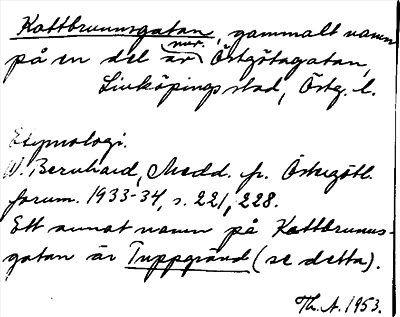 Kattbrunnsgatan, gammalt namn
på en del av nuv. Östgötagatan,
Linköpings stad, Östg. l.
Etymologi.
W. Bernhard, Medd. fr. Östergötl.
forum. 1933-34, s. 221, 228.
Ett annat namn på Kattbrunns-
gatan är Tuppgränd (se detta).
Th. A. 1953.